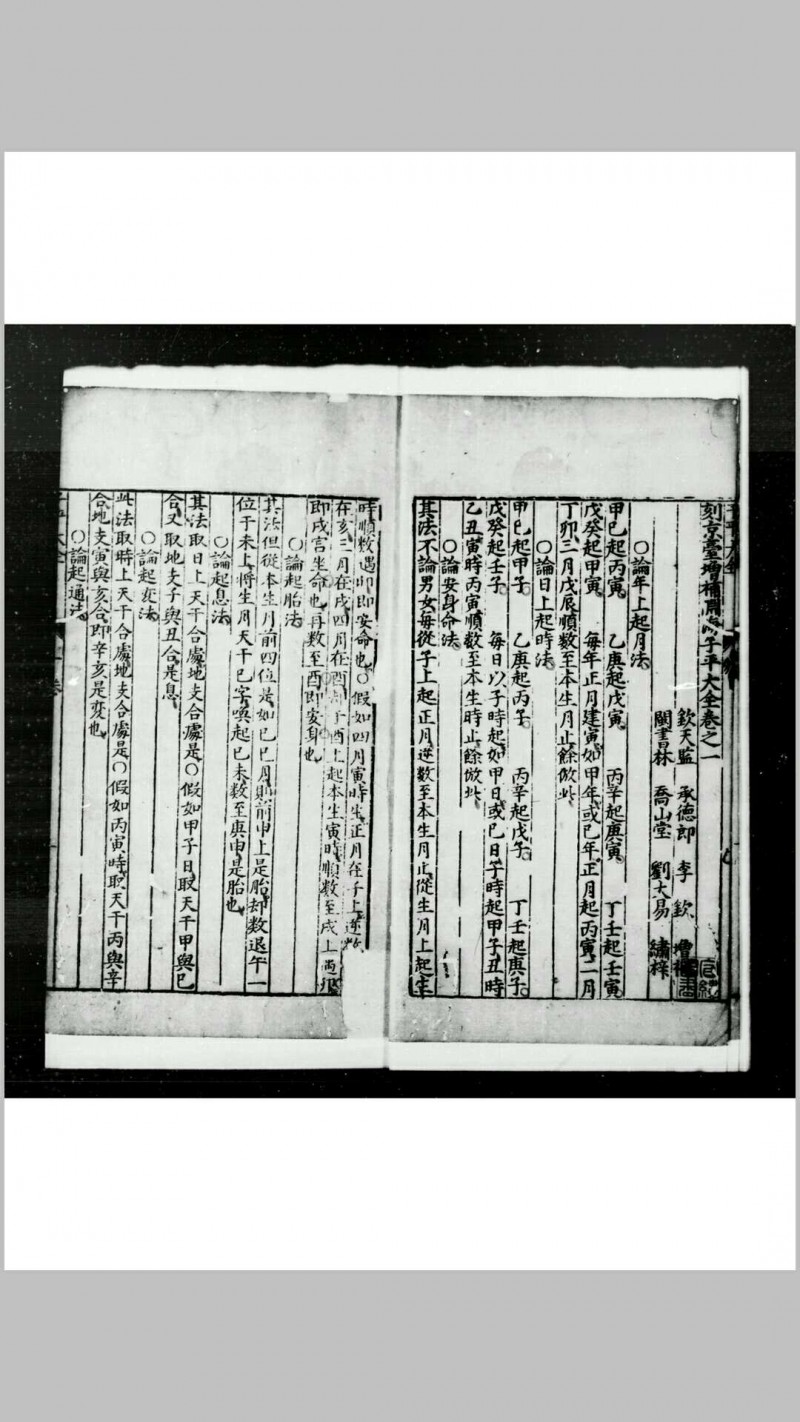 刻京臺增補淵 子平大全卷之一
欽天監 承德郎 李 欽 增補
閩書林 喬山堂 劉大易 繡梓
○論年上起月法
甲巳起丙寅 乙庚起戊寅 丙辛起庚寅 丁壬起壬寅
戊癸起甲寅 每年正月建寅如甲年或巳年正月起丙寅二月
丁卯三月戊辰順數至本生月止餘倣此
○論日上起時法
甲巳起甲子 乙庚起丙子 丙辛起戊子 丁壬起庚子
戊癸起壬子 每日以子時起如甲日或巳日子時起甲子丑時
乙丑寅時丙寅順數至本生時止餘倣此
○論安身命法
其法不論男女每從子上起正月逆數至本生月止從生月上起生
時順數遇卯即安命也○假如四月寅時生正月在子上逆數
在亥三月在戌四月在酉 酉上起本生寅時順數至戌上遇卯
即戌宮生命也再數至酉即安身也
○論起胎法
其法但從本生月前四位是如巳巳月則前申上是胎却數退午一
位于未上將生月天干巳字喚起巳未數至庚申是胎也
○論起息法
其法取日上天干合處地支合處是○假如甲子日取天干甲與巳
合又取地支子與丑合是息
○論起変法
此法取時上天干合處地支合處是○假如丙寅時取天干丙與辛
合地支寅與亥合即辛亥是变也
○論起通法